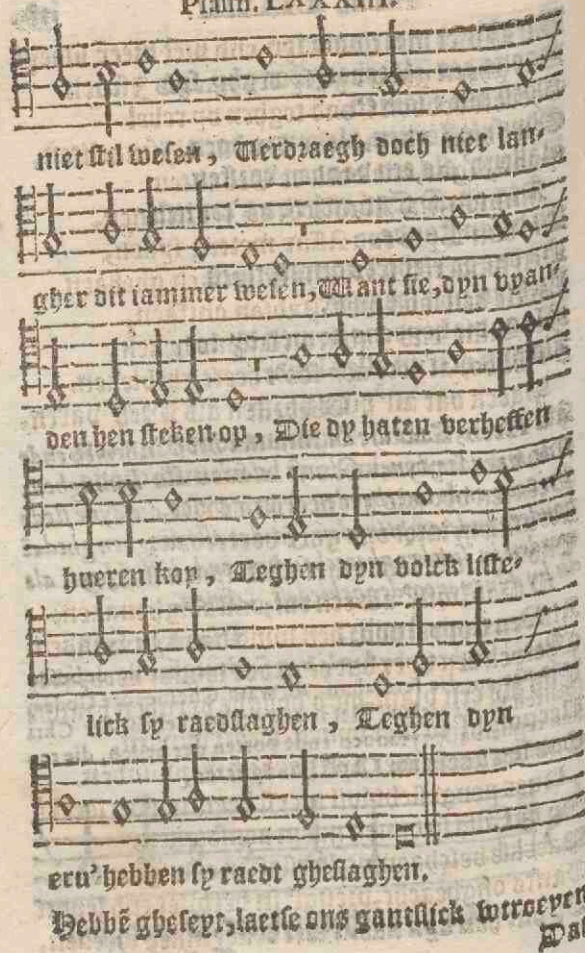 Psalm. LXXXIII.
niet stil wesen, Uerdraegh doch niet lan-
gher dit iammer wesen, Want sie, dyn vyan-
den hen steken op, Die dy haten verheffen
hueren kop, Teghen dyn volck liste-
lick sy raedslaghen, Teghen dyn
eru' hebben sy raedt gheslaghen.
Hebbē gheseyt, laetse ons gantslick wtroeyen
Dat